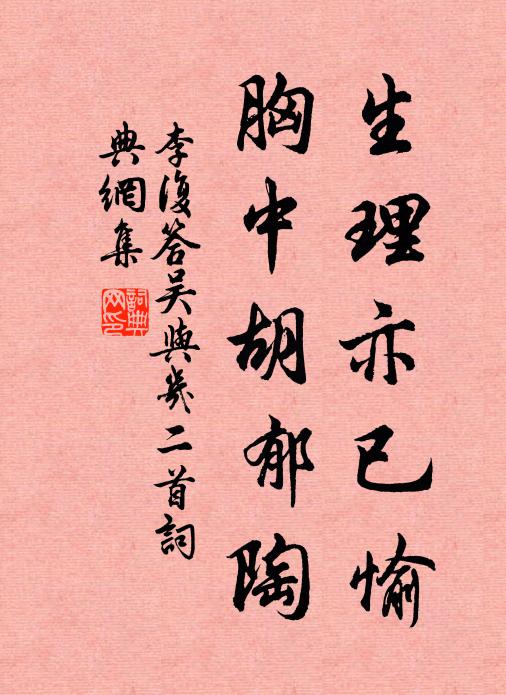 生理亦已愉
胸中胡郁陶
李復答吴與幾二首詞
典網集
詞典網印